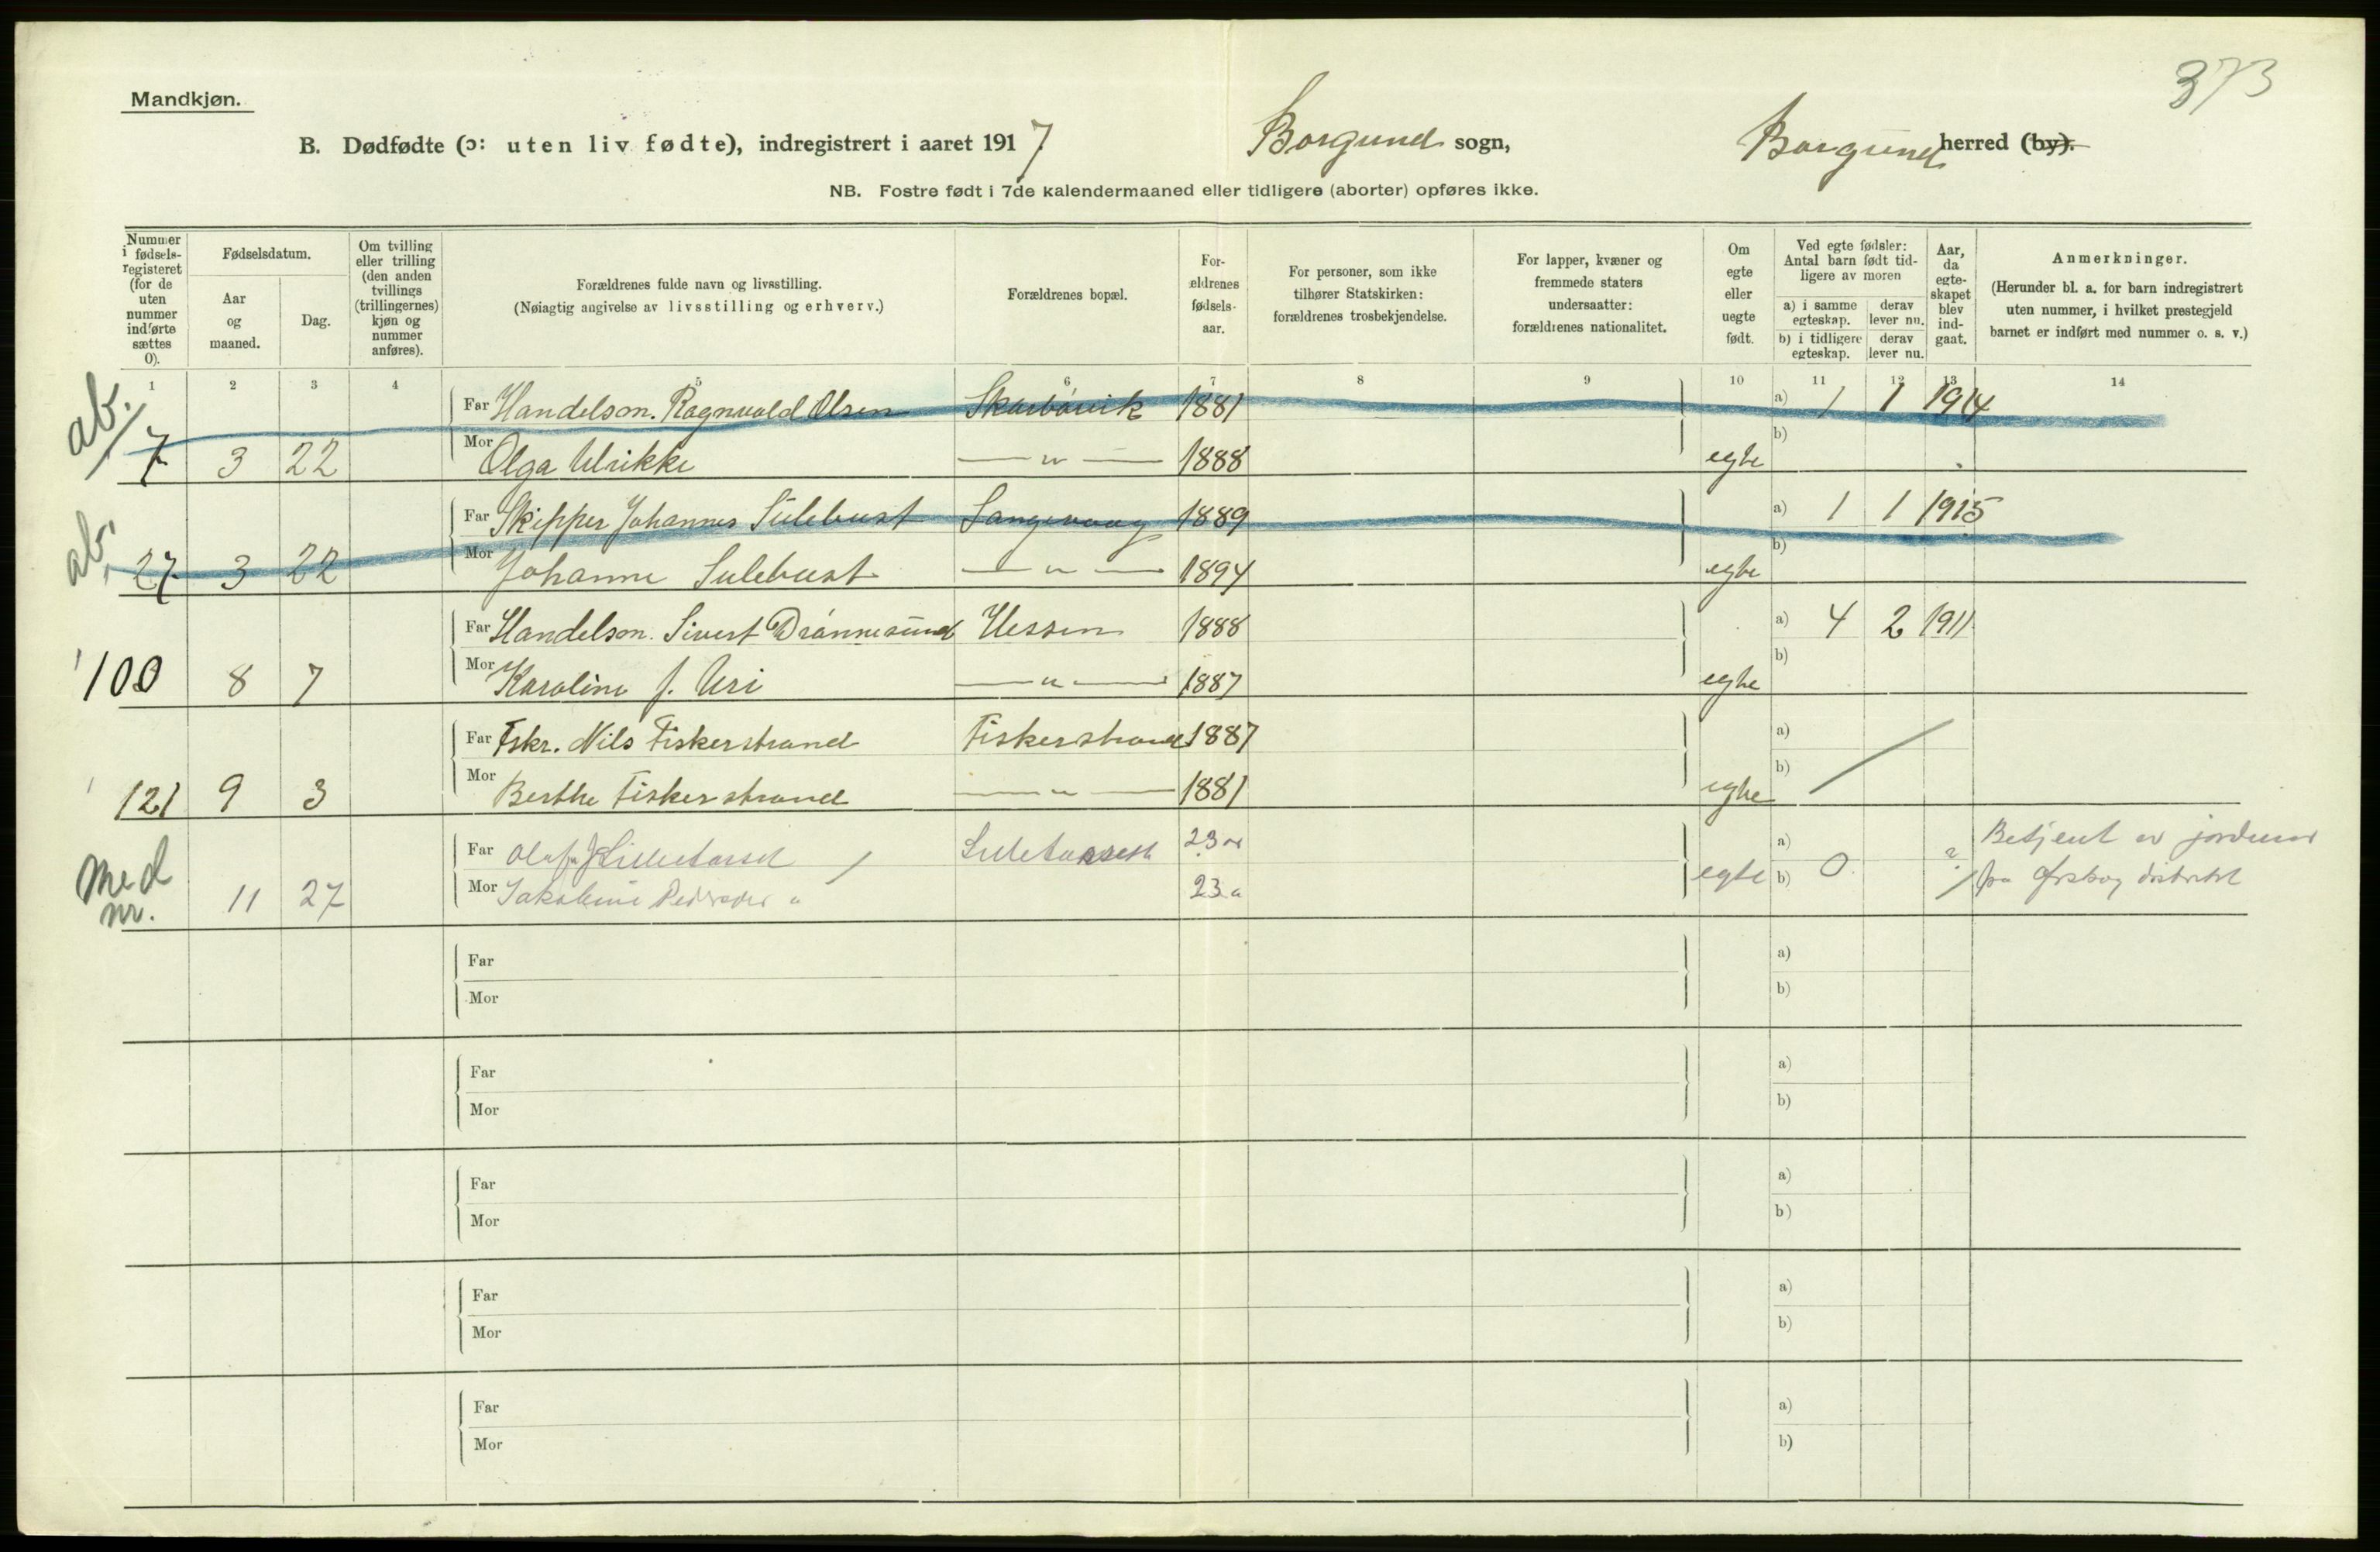 373
Mandkjøn.
B. Dødfødte (ɔ: uten liv fødte), indregistrert i aaret 1917 Borgund sogn, Borgund herred (by).
NB. Fostre født i 7de kalendermaaned eller tidligere (aborter) opføres ikke.
Nummer i fødsels-registeret (for de uten nummer indførte sættes 0).
Fødselsdatum.
Aar og maaned.
Dag.
Om tvilling eller trilling (den anden tvillings (trillingernes) kjøn og nummer anføres).
Forældrenes fulde navn og livsstilling.
(Nøiagtig angivelse av livsstilling og erhverv.)
Forældrenes bopæl.
For-ældrenes fødsels-aar.
For personer, som ikke tilhører Statskirken: forældrenes trosbekjendelse.
For lapper, kvæner og fremmede staters undersaatter: forældrenes nationalitet.
Om egte eller uegte født.
Ved egte fødsler: Antal barn født tid-ligere av moren
a) i samme egteskap.
derav lever nu.
b) i tidligere egteskap.
derav lever nu.
Aar, da egte-skapet blev ind-gaat.
Anmerkninger.
(Herunder bl. a. for barn indregistrert uten nummer, i hvilket prestegjeld barnet er indført med nummer o. s. v.)
1 2 3 4 5 6 7 8 9 10 11 12 13 14
ab.
Far Handelsm. Ragnvald Olsen Skarbøvik 1881 a) 1 1 1914
7 3 22 Mor Olga Ulrikke —"— 1888 egte b)
ab.
Far Skipper Johannes Sulebust Langevaag 1889 a) 1 1 1915
27 3 22 Mor Johanne Sulebust —"— 1894 egte b)
Far Handelsm. Sivert Drønnesund Hessen 1888 a) 4 2 1911
100 8 7 Mor Karoline f. Uri —"— 1887 egte b)
Far Fskr. Nils Fiskerstrand Fiskerstrand 1887 a)
121 9 3 Mor Berthe Fiskerstrand —"— 1881 egte b)
Med nr.
Far Olaf J Lilletorset 23 a) ? Betjent av jordmor
11 27 Mor Jakobine " 23 a egte b) 0 fra Ørskog distrikt
Far a)
Mor b)
Far a)
Mor b)
Far a)
Mor b)
Far a)
Mor b)
Far a)
Mor b)